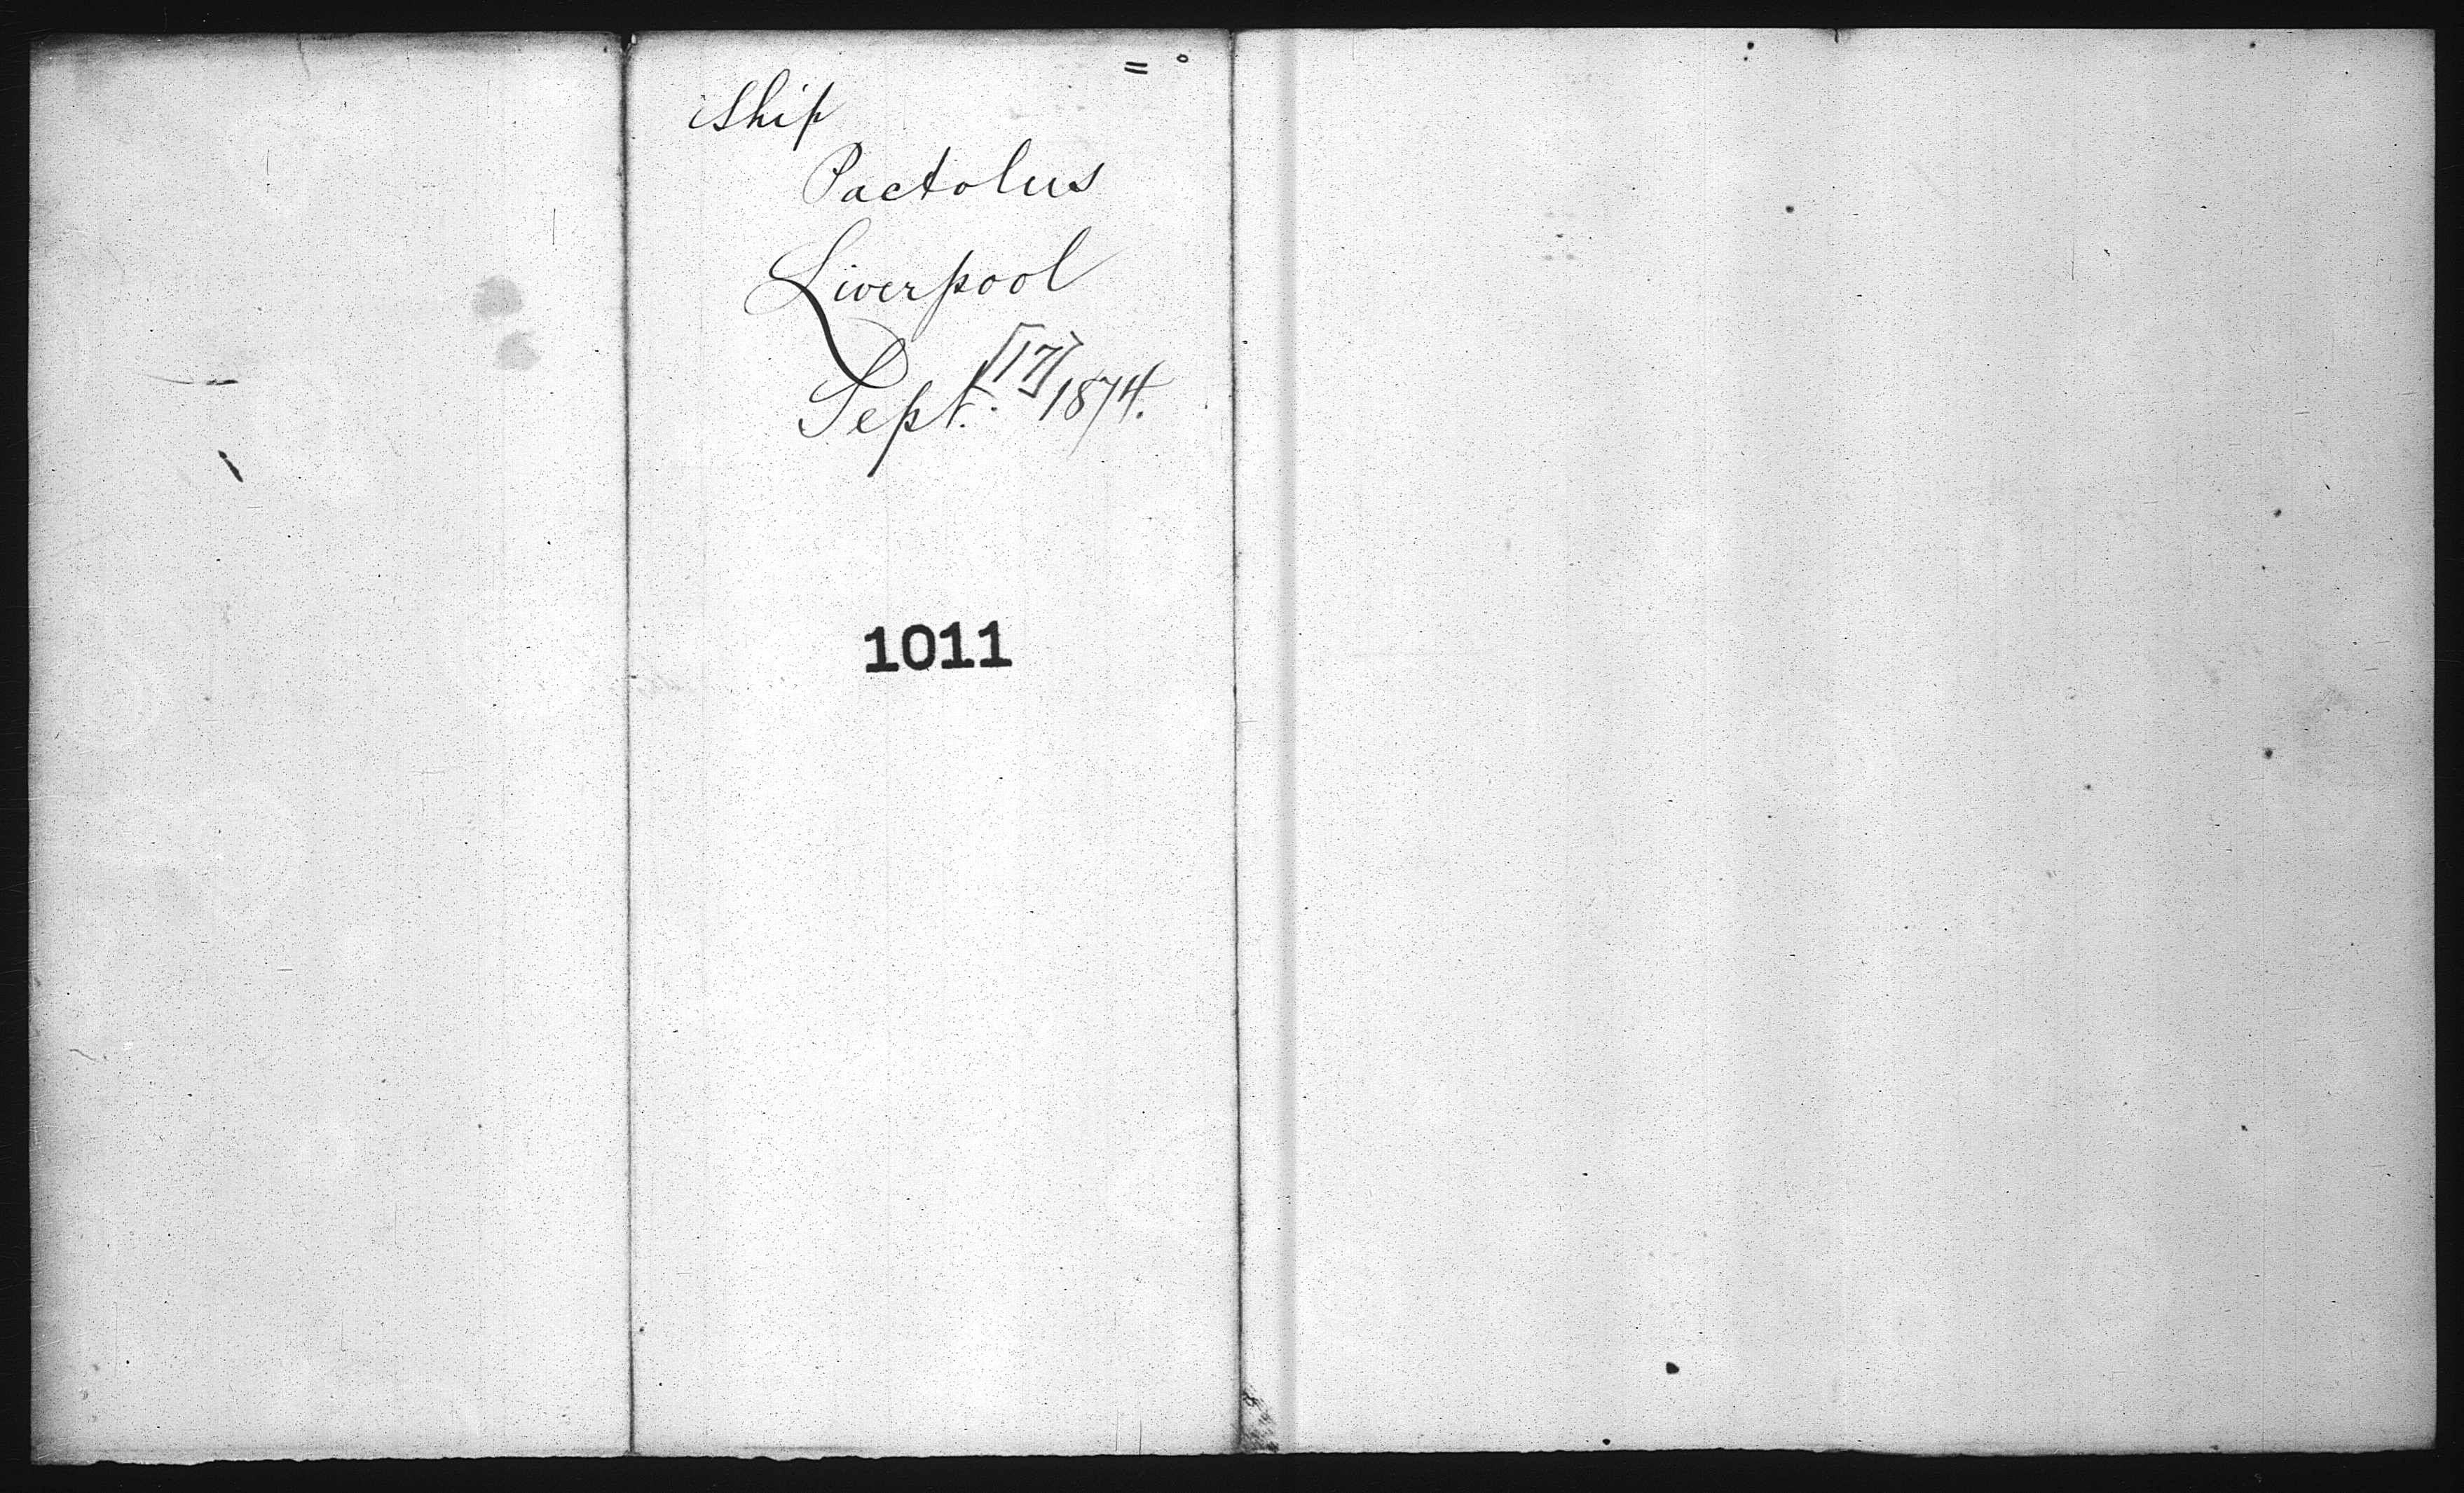 = °
Ship
Pactolus
Liverpool
Sept. [17] 1874.
1011